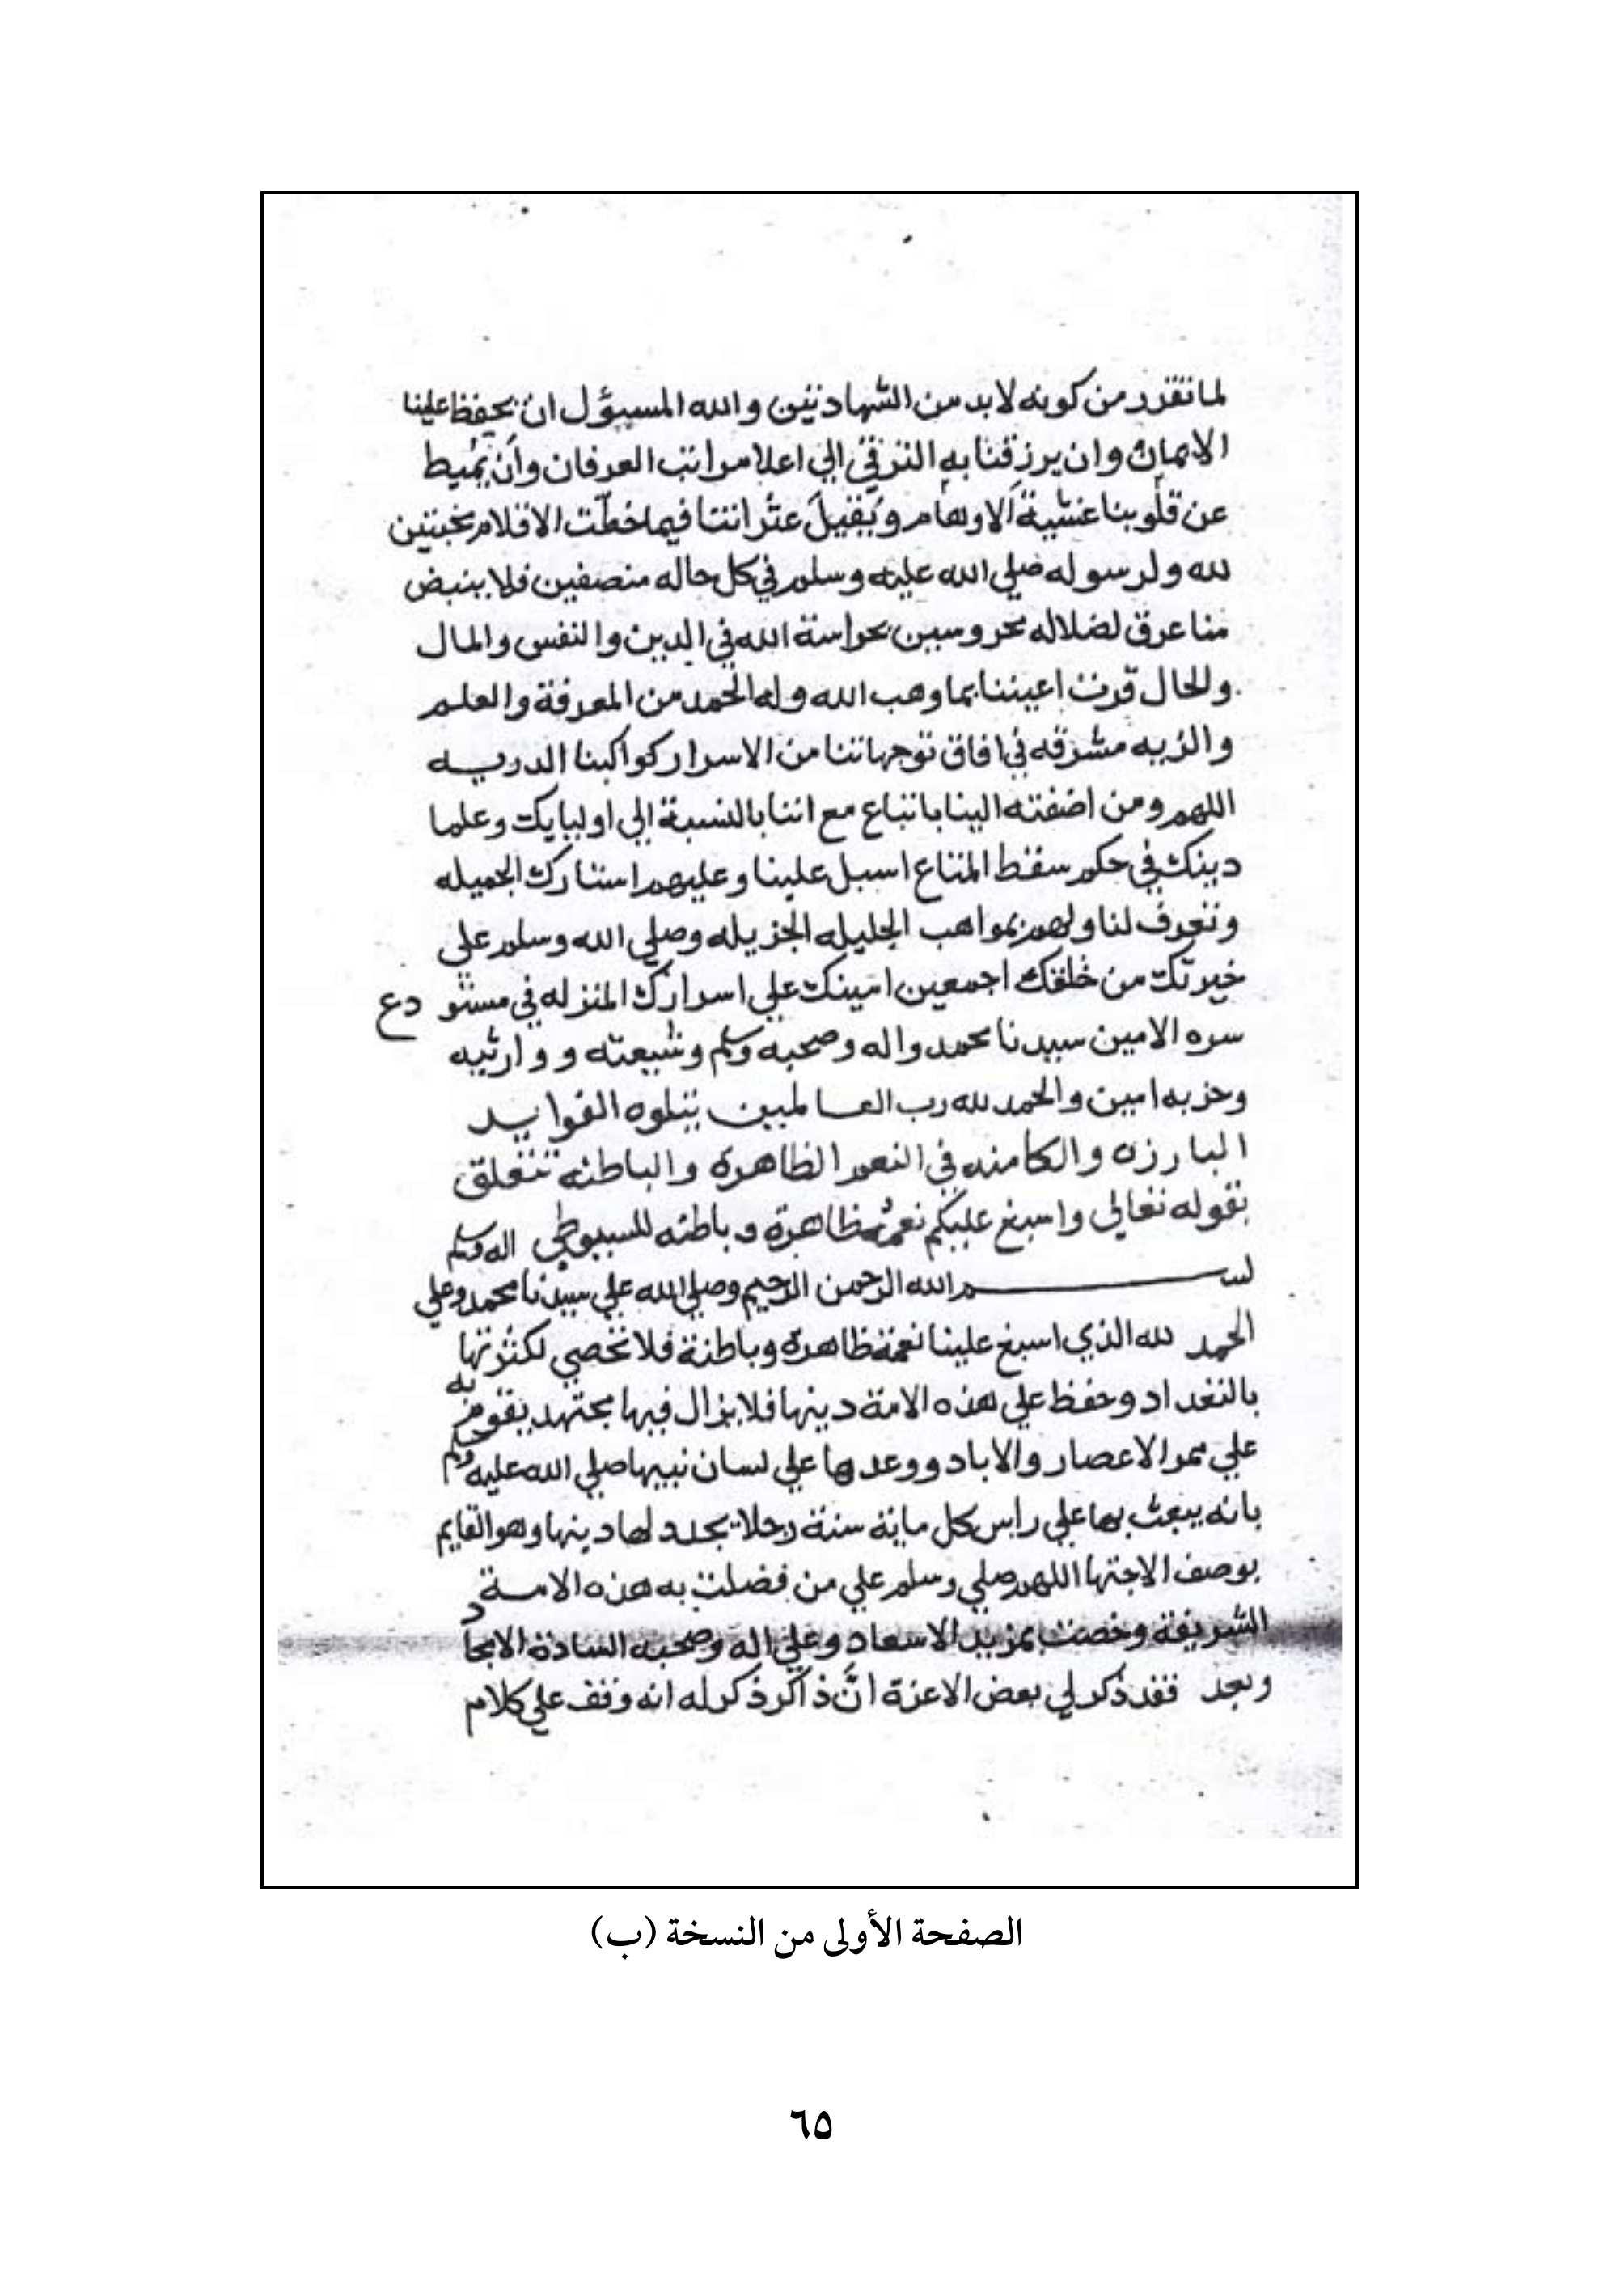 لما تقرر من كونه لا بد من الشهادتين والله المسؤل ان يحفظ علينا
الايمان وان يرزقنا به الترقي الي اعلا مراتب العرفان وأن يُميط
عن قلوبنا غشية الاوهام ويُقيلَ عثراتنا فيما خطّت الاقلام مخبتين
لله ولرسوله صلي الله عليه وسلم في كل حاله منصفين فلا ينبض
منا عرق لضلاله محروسين بحراسة الله في الدين والنفس والمال
والحال قرت اعيننا بما وهب الله وله الحمد من المعرفة والعلم
والزيه مشرقه في افاق توجهاتنا من الاسرار كواكبنا الدريه
اللهم ومن اضفته الينا باتباع مع اننا بالنسبة الي اوليايك وعلما
دينك في حكم سقط المتاع اسبل علينا وعليهم استارك الجميله
وتعرف لنا ولهم بمواهب الجليله الجزيله وصلي الله وسلم علي
خيرتك من خلقك اجمعين امينك علي اسرارك المنزله في مستودع
سره الامين سيدنا محمد واله وصحبه وسلم وشيعته ووارثيه
وحزبه امين والحمد لله رب العالمين يتلوه الفوايد
البارزه والكامنه في النعم الظاهرة والباطنه تتعلق
بقوله تعالي واسبغ عليكم نعمه ظاهرة وباطنه للسيوطي
بسم الله الرحمن الرحيم وصلي الله علي سيدنا محمد وعلي اله وسلم
الحمد لله الذي اسبغ علينا نعمة ظاهرة وباطنة فلا تحصي لكثرتها
بالتعداد وحفظ علي هذه الامة دينها فلا يزال فيها مجتهد يقوم به
علي ممر الاعصار والاباد ووعدها علي لسان نبيها صلي الله عليه وسلم
بانه يبعث بها علي راس كل ماية سنة رجلا يجدد لها دينها وهو القايم
بوصف الاجتها اللهم صلي وسلم علي من فضلت به هذه الامة
الشريفة وخصت بمزيد الاسعاد وعلي اله وصحبه السادة الامجاد
وبعد فقد ذكر لي بعض الاعزة انَّ ذاكر ذكر له انه وقف علي كلام
الصفحة الأولى من النسخة (ب)
٦٥